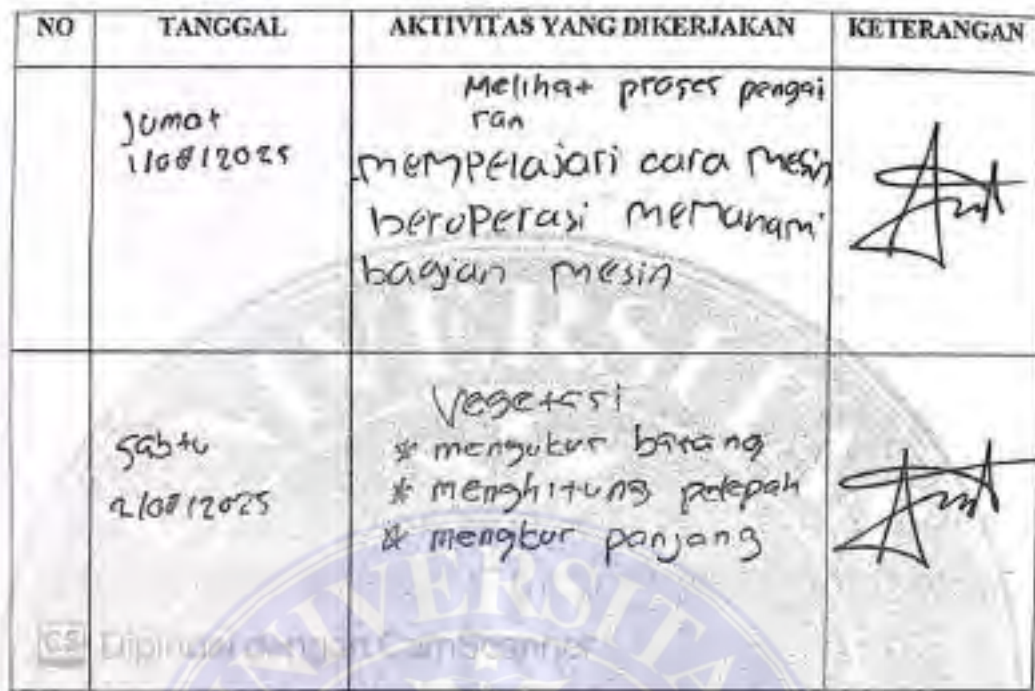 NO TANGGAL AKTIVITAS YANG DIKERJAKAN KETERANGAN
Jumat
1/08/2025
Melihat proses pengai
ran
mempelajari cara mesin
beroperasi memahami
bagian mesin
Sabtu
2/08/2025
Vegetasi
* mengukur batang
* menghitung pelepah
* mengkur panjang
CS Dipindai dengan CamScanner
UNIVERSITA